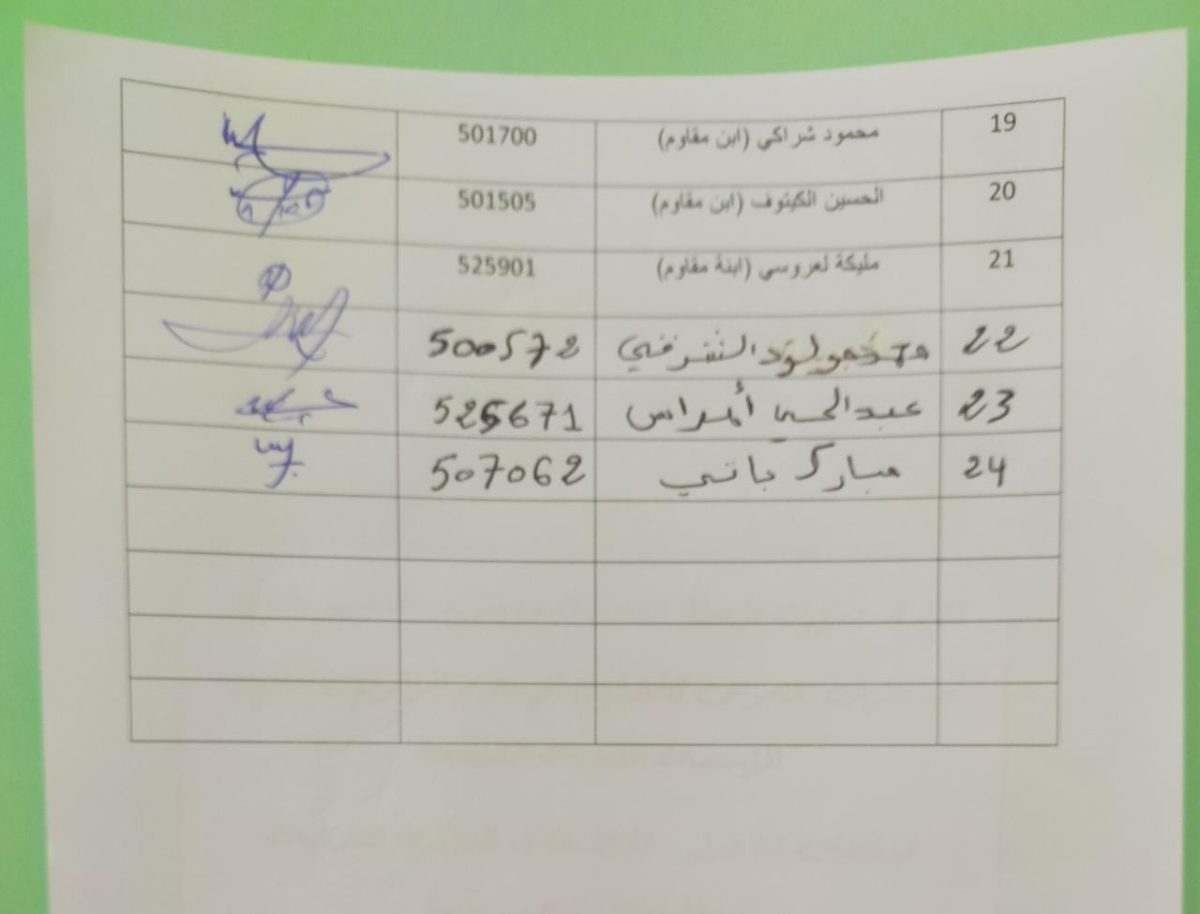 19 محمود شراكي (ابن مقاوم) 501700
20 الحسين الكيتوف (ابن مقاوم) 501505
21 مليكة لعروسي (ابنة مقاوم) 525901
22 500572
23 عبد 525671
24 مبارك باتي 507062